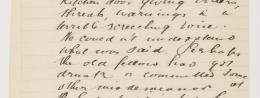 kitchen door giving orders,
threats, warnings in a
terrible screeching voice.
He could not understand
what was said. Perhaps
the old
drunk or committed some
other misdemeanor at